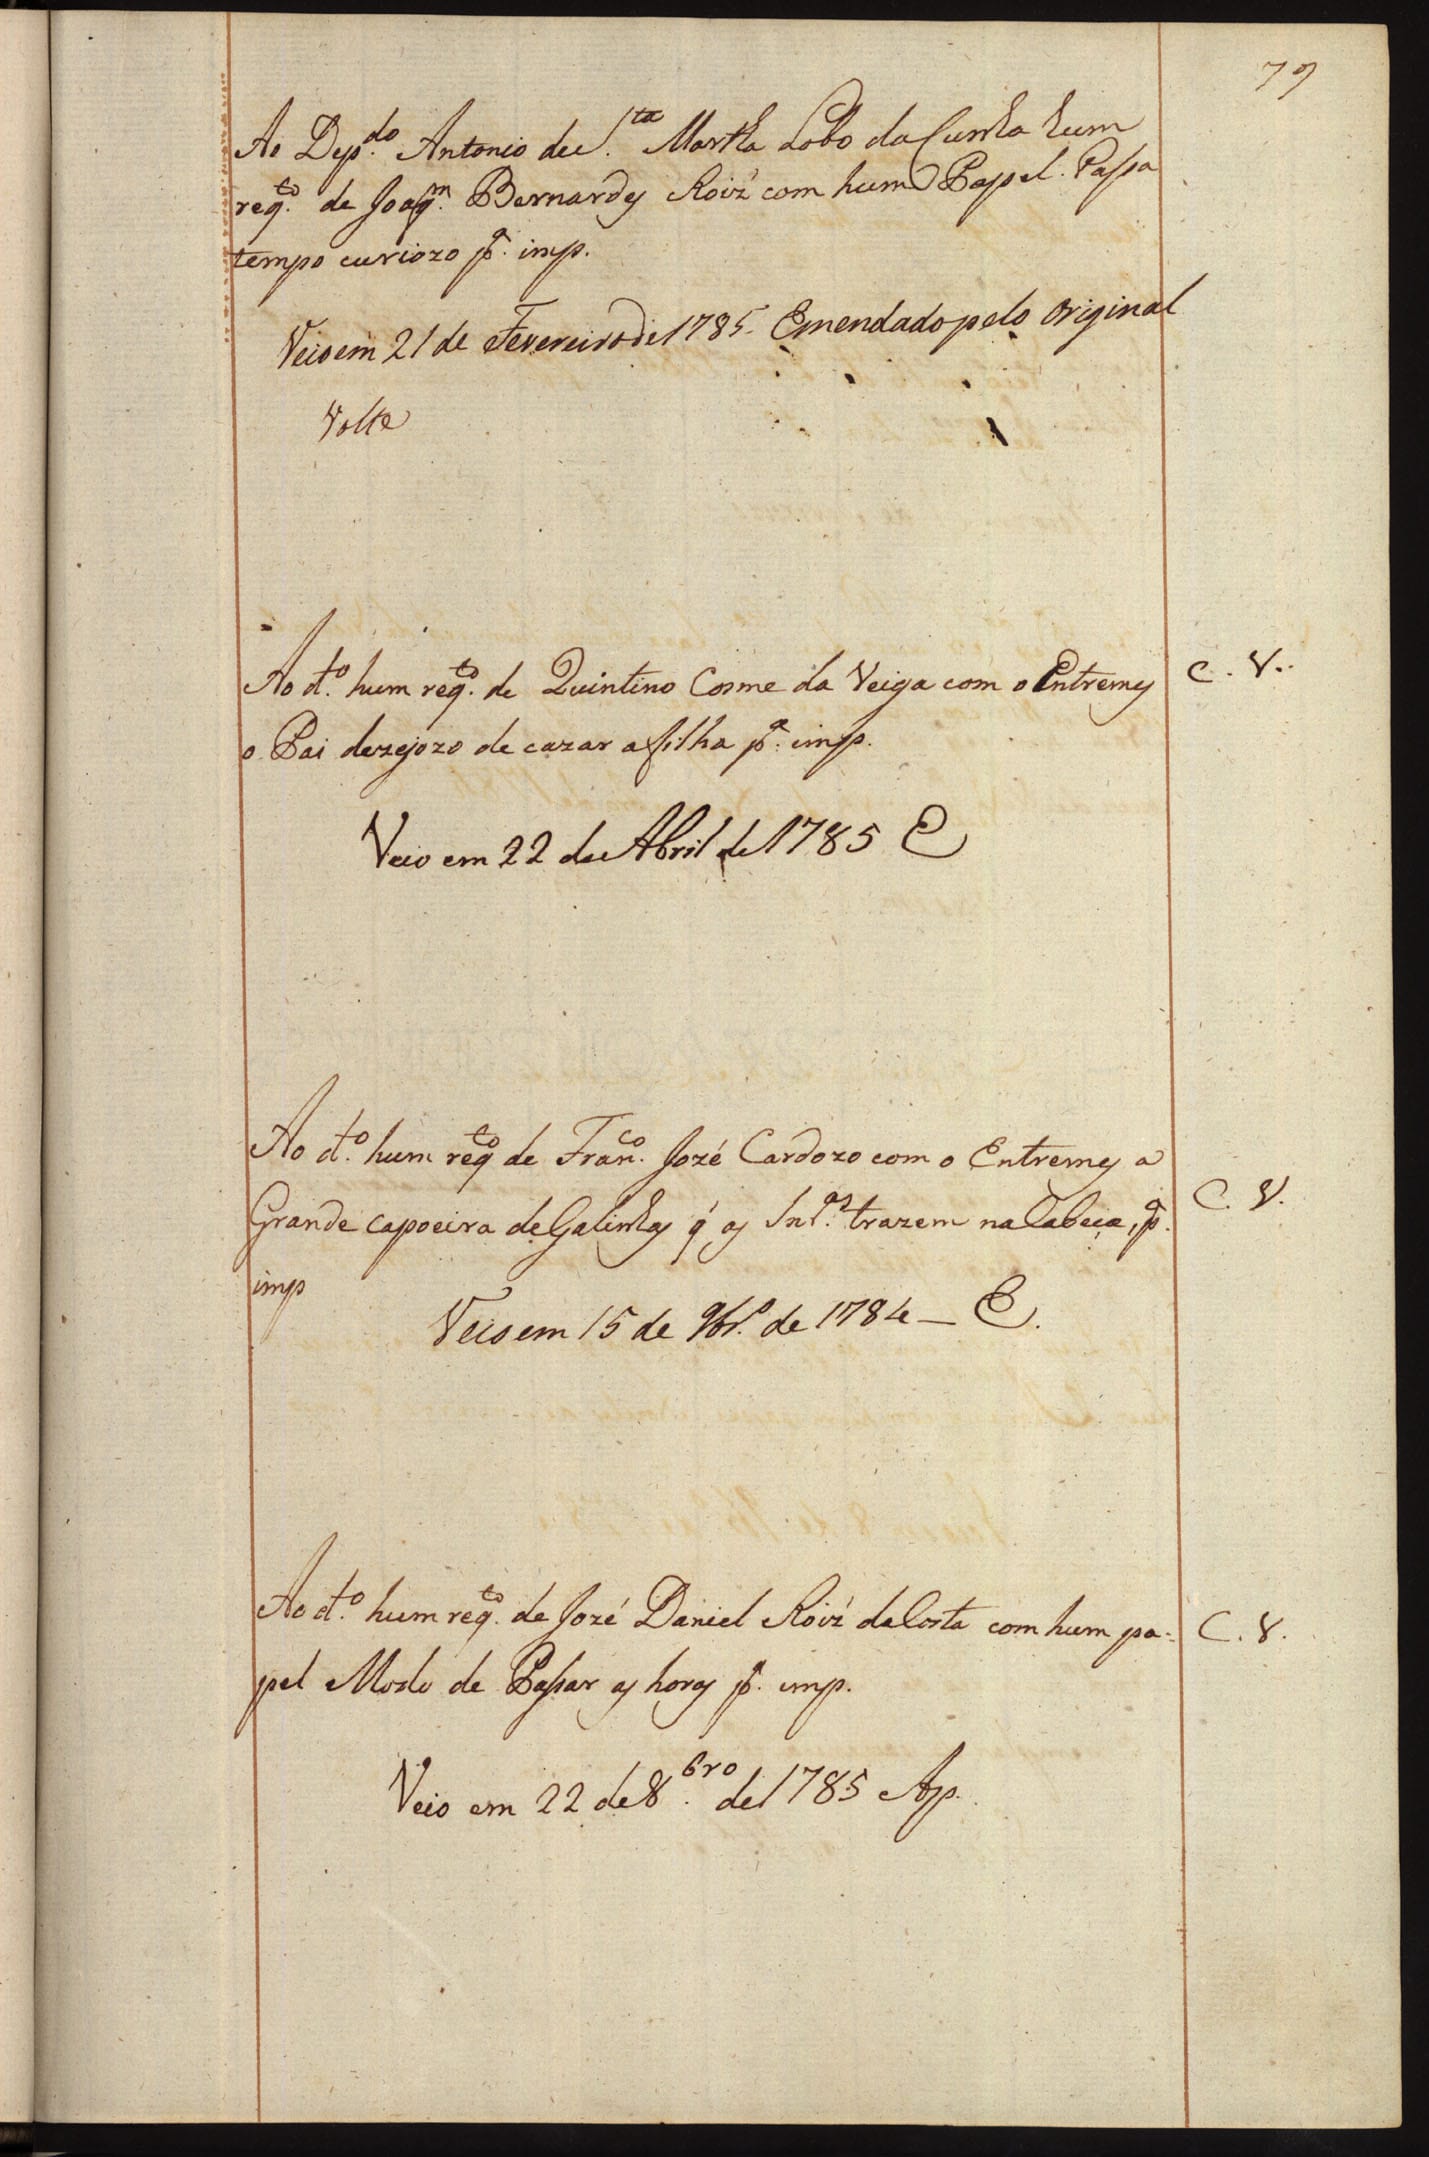 79
Ao Dep.do Antonio de S.ta Martha Lobo da Cunha hum
req.to de Joaq.m Bernardes Roiz' com hum Papel. Passa
tempo curiozo p.a imp.
Veio em 21 de Fevereiro de 1785. Emendado pelo original
Volte
Ao d.o hum req.to de Quintino Cosme da Veiga com o Entremes
o Pai dezejozo de cazar a filha p.a imp.
C. V.
Veio em 22 de Abril de 1785 E
Ao d.o hum req.to de Fran.co Jozé Cardozo com o Entremes a
Grande capoeira de Galinhas q' as Snr.as trazem na Cabeça, p.a
imp
C. V.
Veio em 15 de 9br.o de 1784 — E.
Ao d.o hum req.to de Jozé Daniel Roiz' da Costa com hum pa-
pel Modo de Passar as horas p.a imp.
C. V.
Veio em 22 de 8.bro de 1785 Ap.